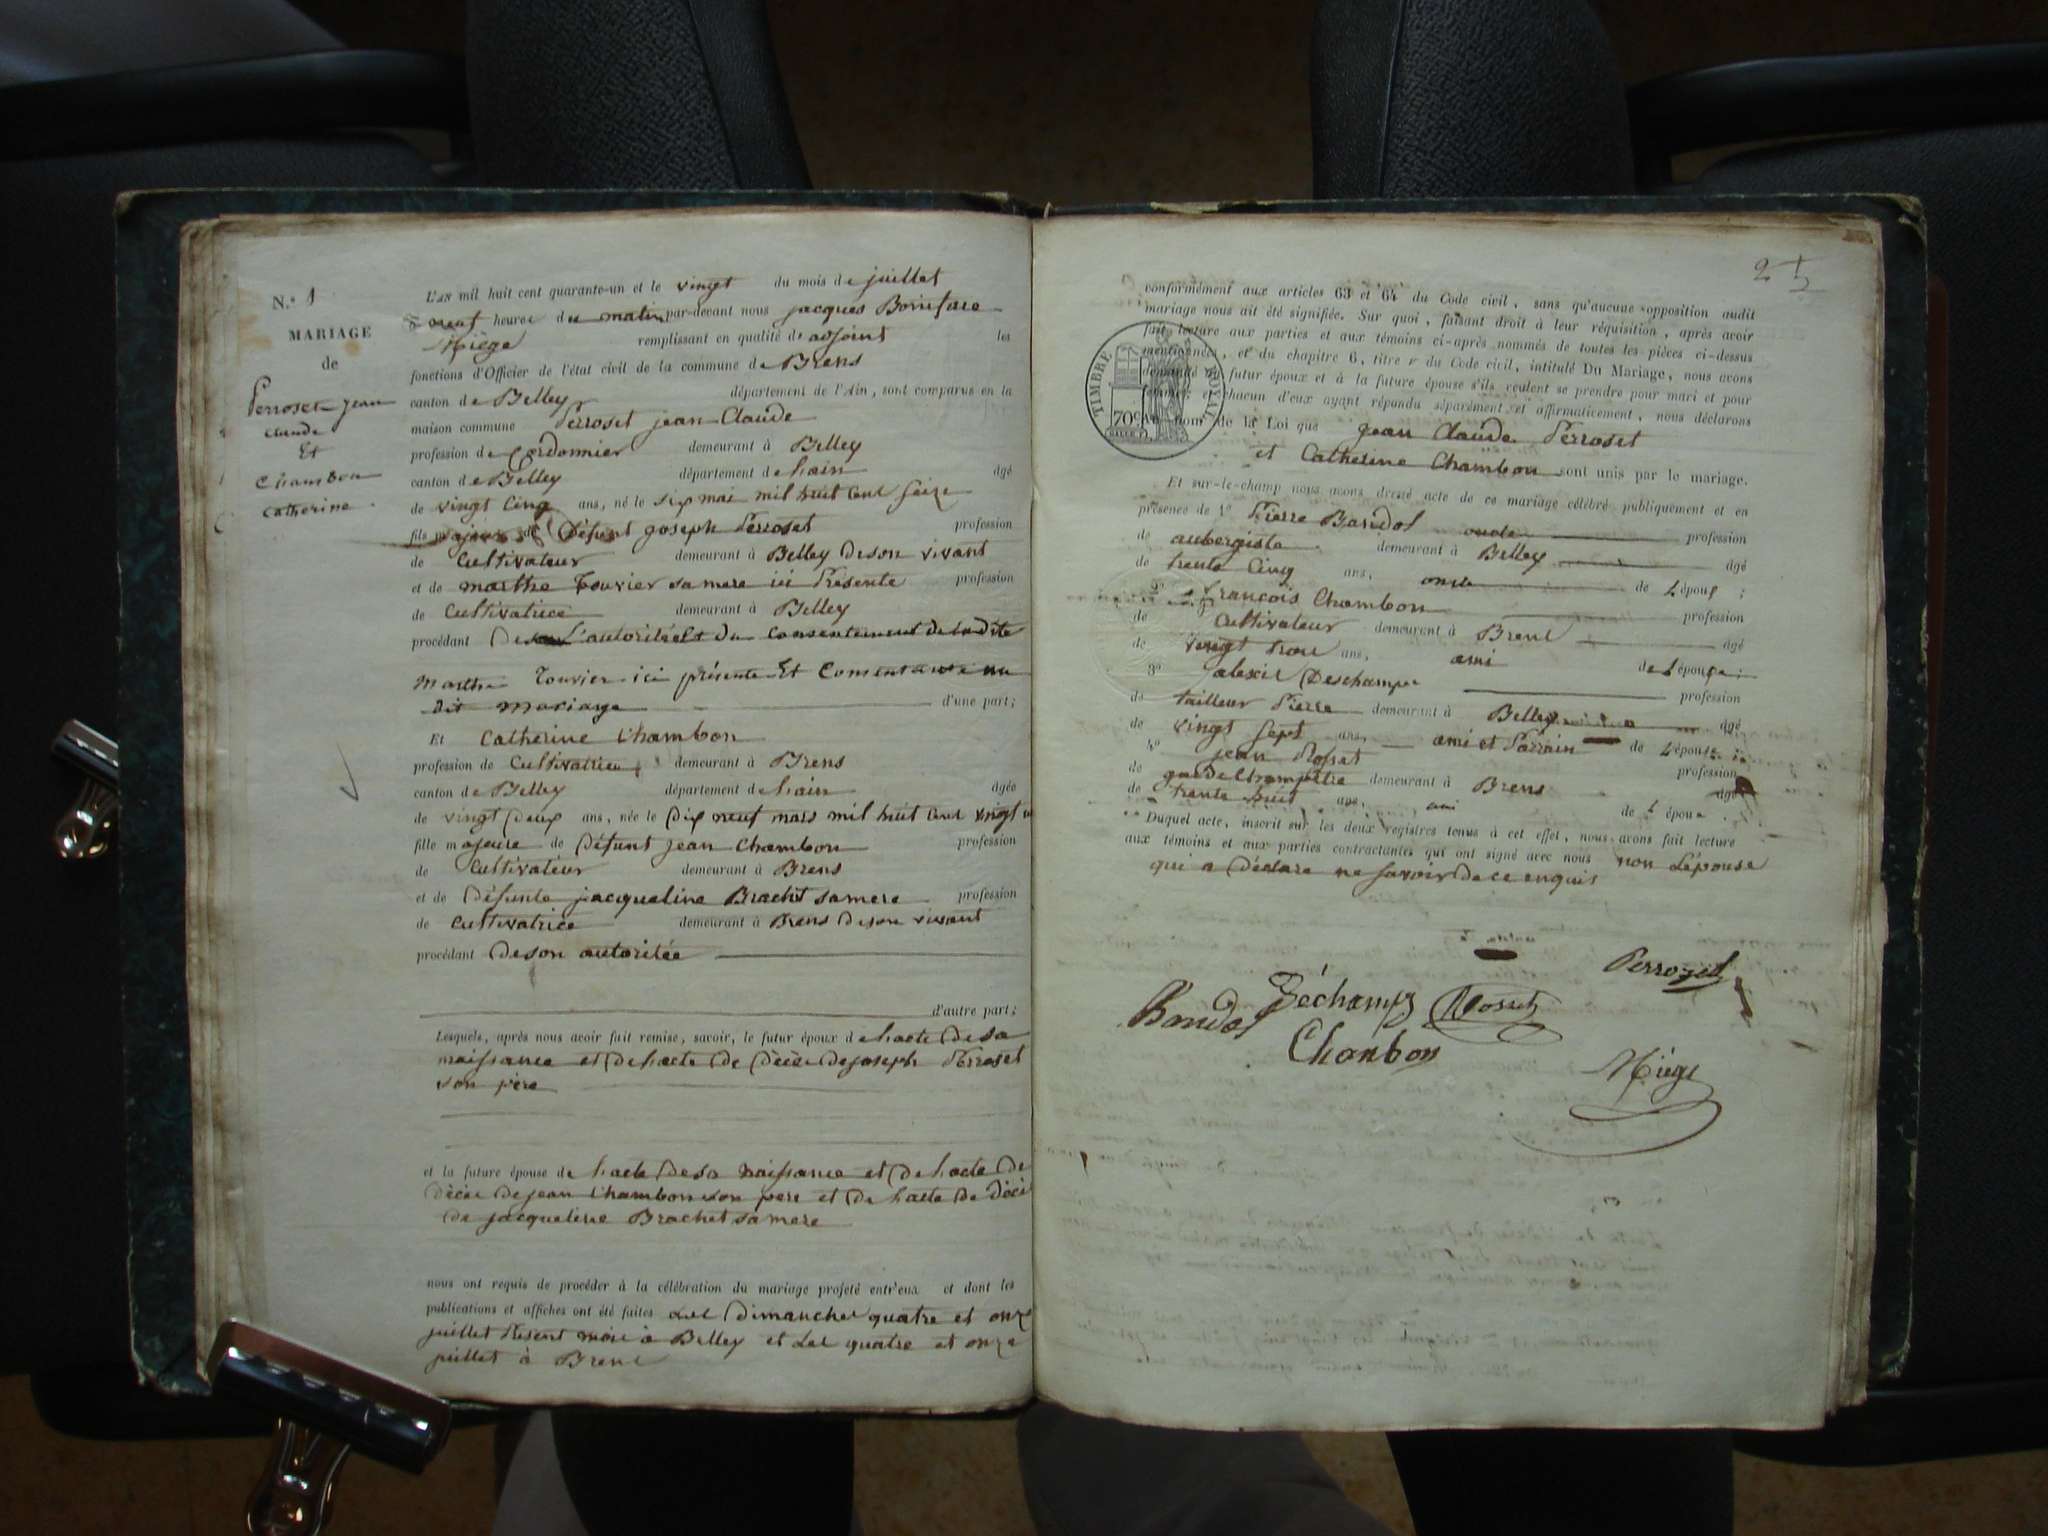 N.º 1
MARIAGE
de
Perroset jean
claude
Et
Chambon
Catherine
L'an mil huit cent quarante-un et le vingt du mois de juillet
neuf heures du matin par-devant nous jacques Boniface
Miège remplissant en qualité d'adjoint les
fonctions d'Officier de l'état civil de la commune de Brens
canton de Belley département de l'Ain, sont comparus en la
maison commune Perroset jean Claude
profession de Cordonnier demeurant à Belley
canton de Belley département de hain âgé
de vingt Cinq ans, né le six mai mil huit Cent Seize
fils majeur de Défunt joseph Perroset profession
de Cultivateur demeurant à Belley de son vivant
et de marthe Touvier sa mere ici Présente profession
de Cultivatrice demeurant à Belley
procédant De L'autorité et du Consentement de ladite
Marthe Touvier ici présente Et Consentante au
dit mariage d'une part;
Et Catherine Chambon
profession de Cultivatrice demeurant à Brens
canton de Belley département de hain âgée
de vingt Deux ans, née le Dix neuf mars mil huit Cent vingt
fille majeure de Défunt jean Chambon profession
de Cultivateur demeurant à Brens
et de Défunte jacqueline Brachet sa mere profession
de Cultivatrice demeurant à Brens de son vivant
procédant de son autoritée
d'autre part;
Lesquels, après nous avoir fait remise, savoir, le futur époux de hacte de sa
naissance et de hacte de Décès de joseph Perroset
son père
et la future épouse de hacte de sa naissance et de hacte de
décès de jean Chambon son pere et de hacte de Décè
de jacqueline Brachet sa mere
nous ont requis de procéder à la célébration du mariage projeté entr'eux et dont les
publications et affiches ont été faites Les Dimanches quatre et onze
juillet Présent mois à Belley et Les quatre et onze
juillet à Brens
2
conformément aux articles 63 et 64 du Code civil, sans qu'aucune opposition audit
mariage nous ait été signifiée. Sur quoi, faisant droit à leur réquisition, après avoir
fait lecture aux parties et aux témoins ci-après nommés de toutes les pièces ci-dessus
mentionnées, et du chapitre 6, titre v du Code civil, intitulé Du Mariage, nous avons
demandé au futur époux et à la future épouse s'ils veulent se prendre pour mari et pour
femme; et chacun d'eux ayant répondu séparément et affirmativement, nous déclarons
au nom de la Loi que jean Claude Perroset
et Catherine Chambon sont unis par le mariage.
TIMBRE ROYAL
70 c
Et sur-le-champ nous avons dressé acte de ce mariage célébré publiquement et en
présence de 1º Pierre Baudot oncle profession
de aubergiste demeurant à Belley âgé
de trente Cinq ans, oncle de L'époux ;
2º françois Chambon profession
de Cultivateur demeurant à Brens âgé
de vingt trois ans, ami de L'épouse;
3º alexis Deschamps profession
de tailleur Pierre demeurant à Belley âgé
de vingt sept ans, ami et Parrain de L'épouse
4º jean Rosset profession
de garde Champêtre demeurant à Brens âgé
de trente huit ans, ami de L'époux
Duquel acte, inscrit sur les deux registres tenus à cet effet, nous avons fait lecture
aux témoins et aux parties contractantes qui ont signé avec nous non L'épouse
qui a Déclaré ne savoir de ce enquis
Perrozet
Baudot Déchamps Rosset
Chanbon
Miège